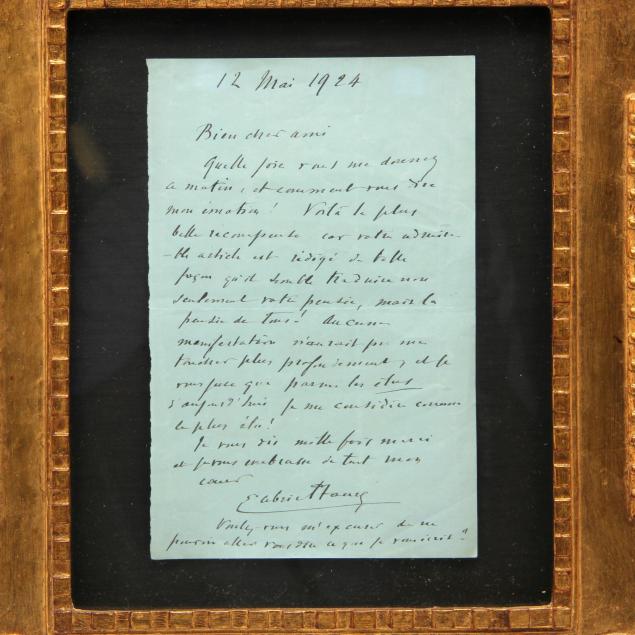 12 Mai 1924
Bien cher ami
Quelle joie vous me donnez
ce matin, et comment vous dire
mon émotion! Voilà la plus
belle récompense car votre admira-
-ble article est rédigé de telle
façon qu'il semble traduire non
seulement votre pensée, mais la
pensée de tous! Aucune
manifestation n'aurait pu me
toucher plus profondément, et je
vous jure que parmi les élus
d'aujourd'hui je me considère comme
le plus élu!
Je vous dis mille fois merci
et je vous embrasse de tout mon
coeur
Voulez-vous m'excuser de ne
pouvoir aller vous dire ce que je